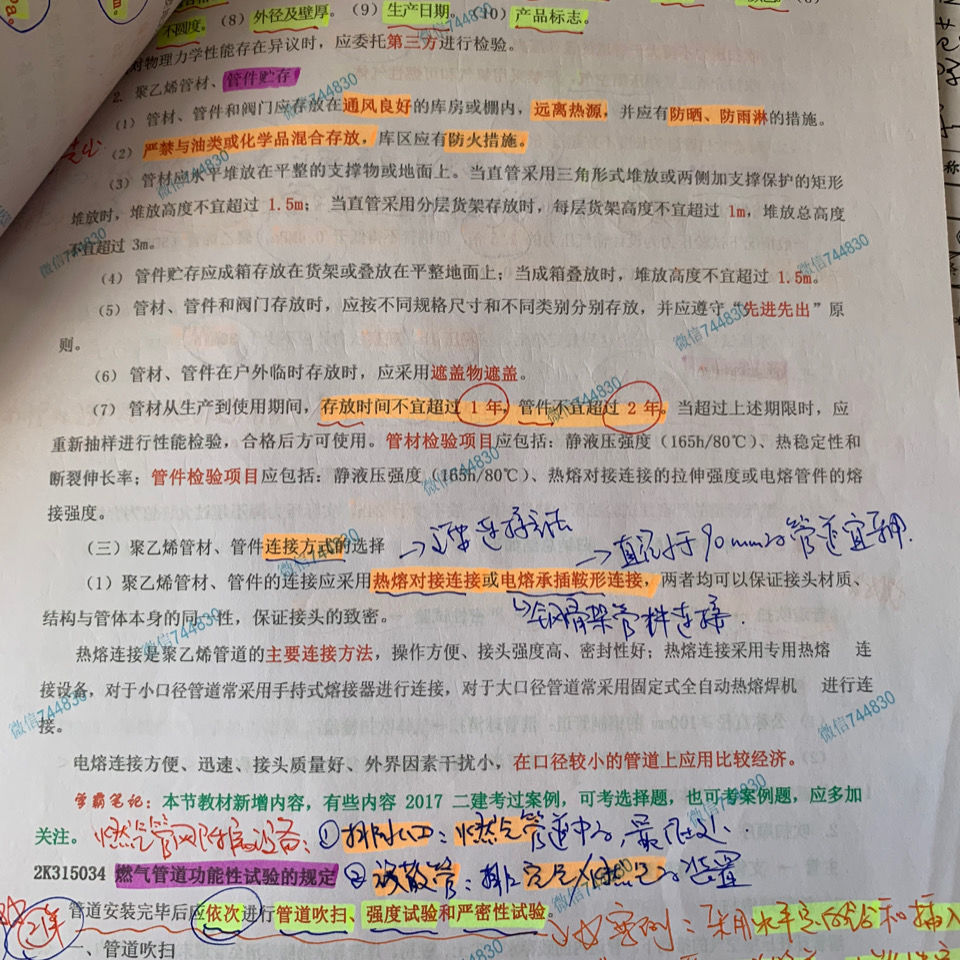 不圆度。（8）外径及壁厚。（9）生产日期。（10）产品标志。
对物理力学性能存在异议时，应委托第三方进行检验。
2. 聚乙烯管材、管件贮存
（1） 管材、管件和阀门应存放在通风良好的库房或棚内，远离热源，并应有防晒、防雨淋的措施。
（2） 严禁与油类或化学品混合存放，库区应有防火措施。
（3） 管材应水平堆放在平整的支撑物或地面上。当直管采用三角形式堆放或两侧加支撑保护的矩形
堆放时，堆放高度不宜超过 1.5m； 当直管采用分层货架存放时，每层货架高度不宜超过 1m，堆放总高度
不宜超过 3m。
（4） 管件贮存应成箱存放在货架或叠放在平整地面上；当成箱叠放时，堆放高度不宜超过 1.5m。
（5） 管材、管件和阀门存放时，应按不同规格尺寸和不同类别分别存放，并应遵守“先进先出”原
则。
（6） 管材、管件在户外临时存放时，应采用遮盖物遮盖。
（7） 管材从生产到使用期间，存放时间不宜超过 1 年，管件不宜超过 2 年。当超过上述期限时，应
重新抽样进行性能检验，合格后方可使用。管材检验项目应包括：静液压强度（165h/80℃）、热稳定性和
断裂伸长率；管件检验项目应包括：静液压强度（165h/80℃）、热熔对接连接的拉伸强度或电熔管件的熔
接强度。
（三）聚乙烯管材、管件连接方式的选择
→直径小于90mm的管道宜采用.
（1）聚乙烯管材、管件的连接应采用热熔对接连接或电熔承插鞍形连接，两者均可以保证接头材质、
结构与管体本身的同一性，保证接头的致密。
钢骨架管材连接.
热熔连接是聚乙烯管道的主要连接方法，操作方便、接头强度高、密封性好；热熔连接采用专用热熔 连
接设备，对于小口径管道常采用手持式熔接器进行连接，对于大口径管道常采用固定式全自动热熔焊机 进行连
接。
电熔连接方便、迅速、接头质量好、外界因素干扰小，在口径较小的管道上应用比较经济。
学霸笔记：本节教材新增内容，有些内容 2017 二建考过案例，可考选择题，也可考案例题，应多加
关注。
燃气管网附属设备：①排水口：燃气管道中的最低处.
2K315034 燃气管道功能性试验的规定
②放散管：排空气/燃气的装置
管道安装完毕后应依次进行管道吹扫、强度试验和严密性试验。
一、管道吹扫
微信744830
微信744830
微信744830
微信744830
微信744830
微信744830
微信744830
微信744830
微信744830
微信744830
微信744830
微信744830
微信744830
微信744830